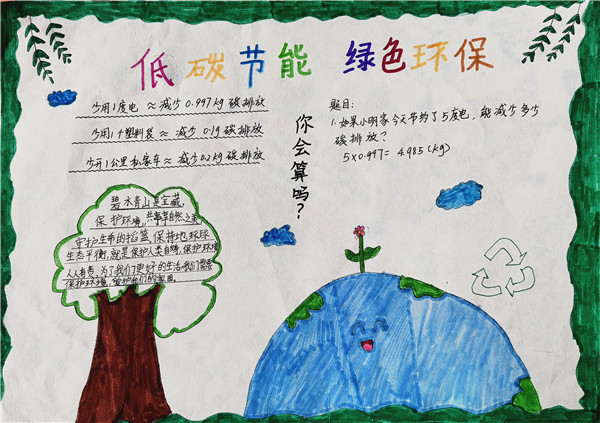 低碳节能 绿色环保
少用1度电 ≈ 减少 0.997kg 碳排放
少用1个塑料袋 ≈ 减少 0.1g 碳排放
少开1公里私家车 ≈ 减少0.2kg 碳排放
你会算吗？
题目：
1.如果小明家今天节约了5度电，能减少多少
碳排放？
5×0.997= 4.985(kg)
碧水青山是宝藏，
保护环境，共享自然之美
守护生命的摇篮，保持地球环
生态平衡，就是保护人类自身，保护环境
人人有责，为了我们更好的生活，我们需要
保护环境，爱护我们的家园。